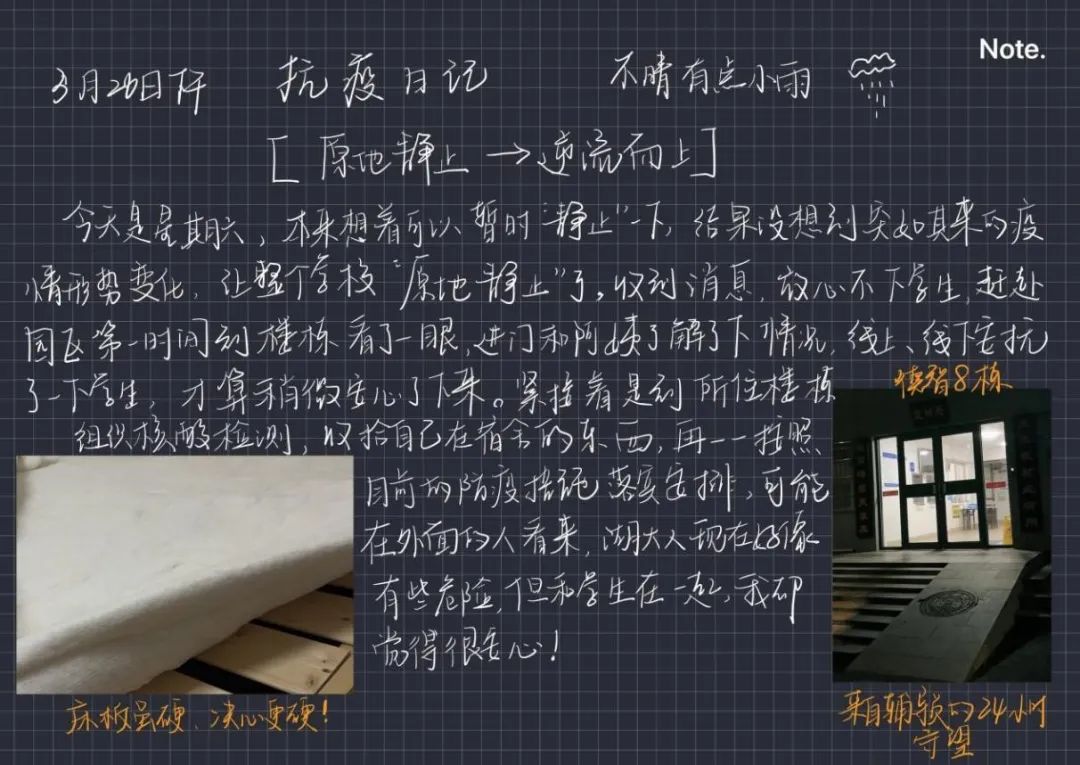 Note.
3月26日下午 抗疫日记 不晴有点小雨
[原地静止→逆流而上]
今天是星期六，本来想着可以暂时"静止"一下，结果没想到突如其来的疫
情形势变化，让整个学校"原地静止"了。收到消息，放心不下学生，赶赴
园区第一时间到楼栋看了一眼，进门和阿姨了解了下情况，线上、线下安抚
了一下学生，才算稍微安心了下来。紧接着是到所住楼栋
组织核酸检测，收拾自己在宿舍的东西，再一一按照
目前的防疫措施落实安排，可能
在外面的人看来，湖大人现在好像
有些危险，但和学生在一起，我却
觉得很安心！
德智8栋
床板虽硬、决心更硬！
来自辅导员的24小时
守望